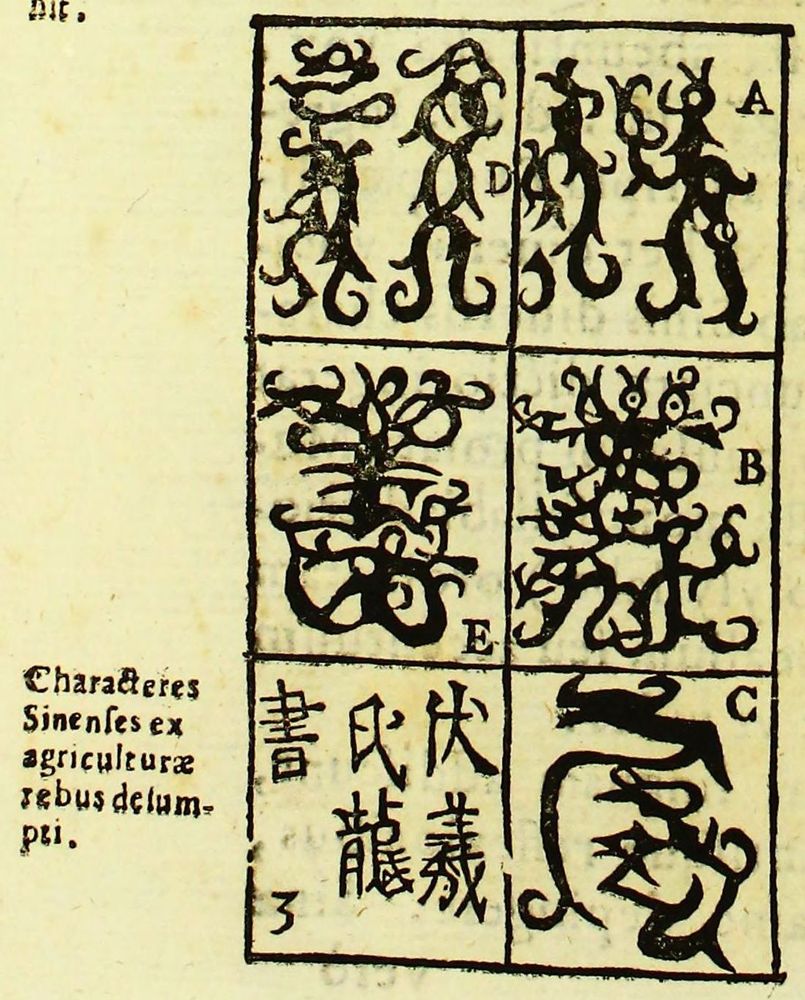 D
A
E
B
C
伏羲
氏龍
書
3
Characteres
Sinenſes ex
agriculturæ
rebus deſum-
pti.